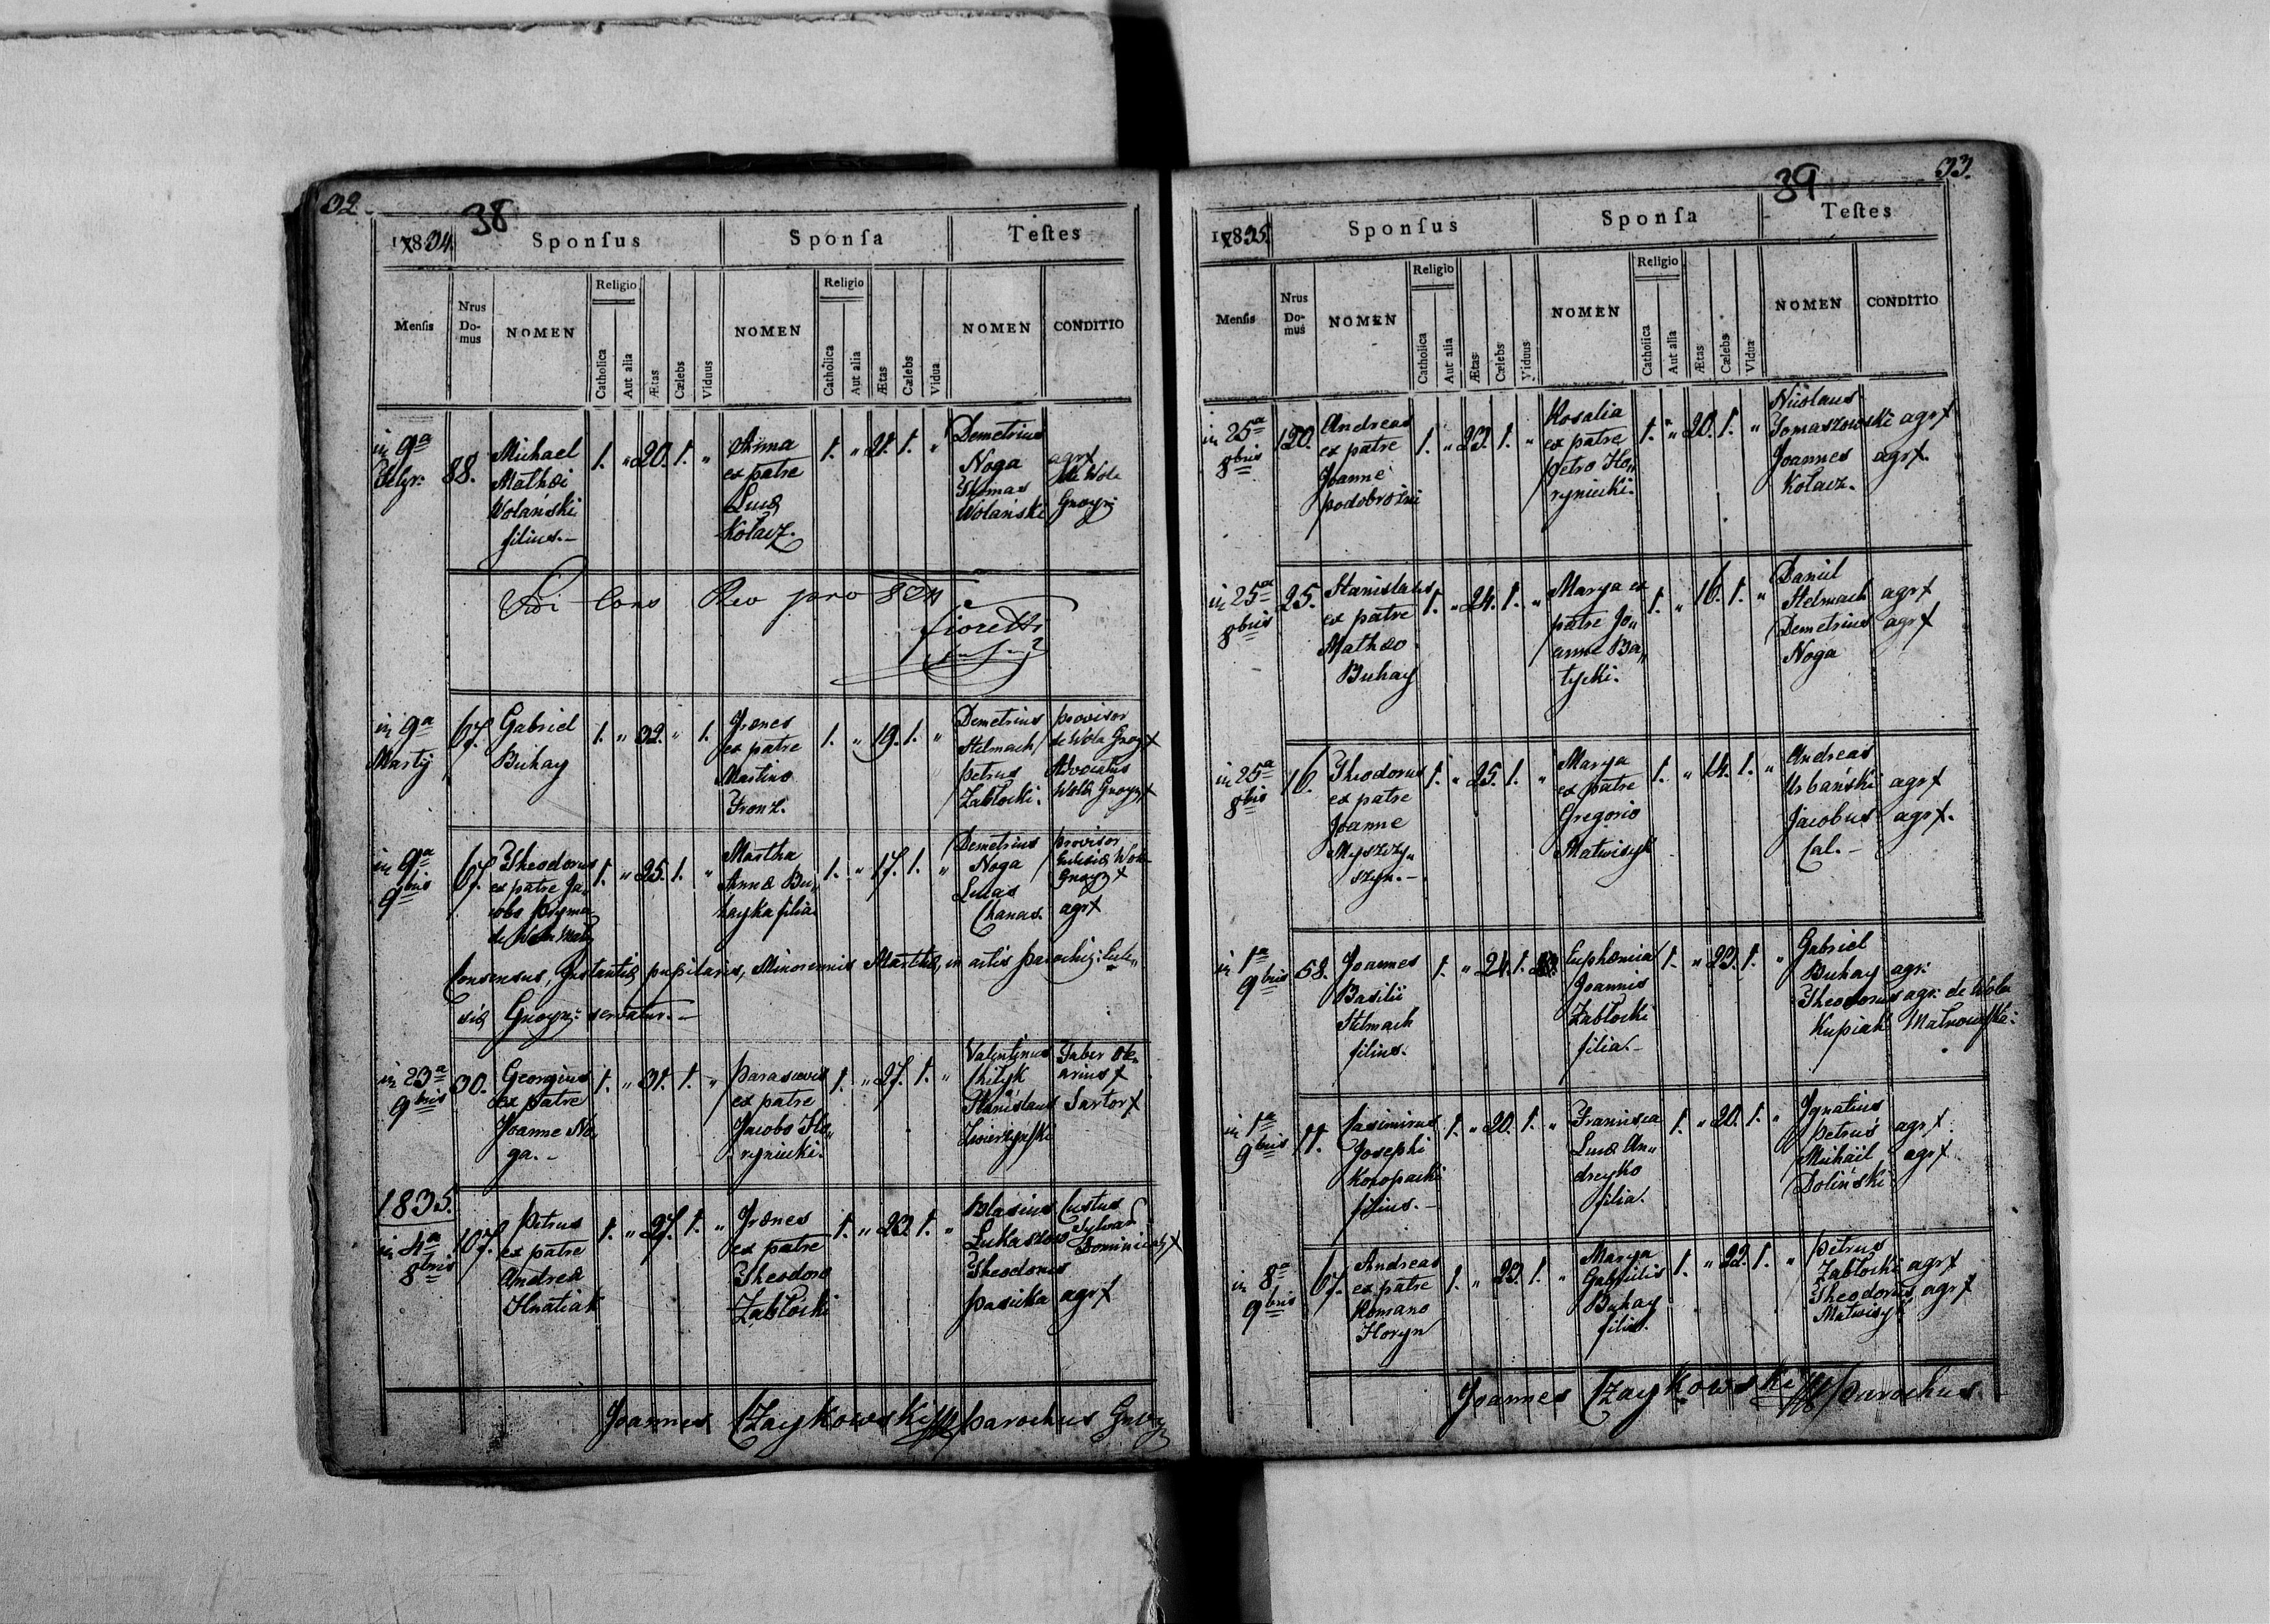 32.
38
1834.
Sponſus
Sponſa
Teſtes
Menſis
Nrus Domus
NOMEN
Religio
Catholica
Aut alia
Ætas
Cælebs
Viduus
NOMEN
Religio
Catholica
Aut alia
Ætas
Cælebs
Vidua
NOMEN
CONDITIO
in 9a
88.
Michael
Mathæi
Wolański
filius.-
1. " 20. 1. "
Anna
ex patre
Lucæ
Kołacz.
1. " 21. 1. "
Demetrius
Noga
Thomas
Wolański
agrx
de Wola
Gnoyn:
pro 834
Fioretti
in 9a
Martij
67.
Gabriel
Buhay
1. " 32. " 1.
Irenes
ex patre
Martino
Fronz.
1. " 19. 1. "
Demetrius
Stelmach
Petrus
Zabłocki.
provisor
de Wola Gnoyx
Advocatus
Wola Gnoynx
in 9a
9bris
67.
Theodorus
ex patre Ja„
cobo Pryma
de Wola
1. " 25. 1. "
Martha
Annæ Bu„
hayka filia
1. " 17. 1. "
Demetrius
Noga
Lucas
Chanas.
provisor
Ecclesiæ Wola
Gnoynx
agrx
Consensus, Instantiæ pupilaris, Minorennis Marthæ, in actis parochij: Eccle„
siæ Gnoyn: servatur.-
in 23a
9bris
30.
Georgius
ex patre
Joanne No„
ga.-
1. " 31. 1. "
Parascevis
ex patre
Jacobo Ho„
rynicki.
1. " 27. 1. "
Valentinus
Stanislaus
Zwierzyński
Faber
ariusx
Sartorx
1835.
in 4a
8bris
107.
Petrus
ex patre
Andrea
Hnatiak
1. " 27. 1. "
Irenes
ex patre
Theodoro
Zabłocki
1. " 23 1. "
Blasius
Łukaszow
Theodorus
Pasicka
Custus
Sylvar
Dominicalx
agrx
Joannes Czaykowski parochus Gnoy
33.
39
1835.
Sponſus
Sponſa
Teſtes
Menſis
Nrus Domus
NOMEN
Religio
Catholica
Aut alia
Ætas
Cælebs
Viduus
NOMEN
Religio
Catholica
Aut alia
Ætas
Cælebs
Vidua
NOMEN
CONDITIO
in 25a
8bris
120.
Andreas
ex patre
Joanne
Podobrożni
1. " 23. 1. "
Rosalia
ex patre
Petro Ho„
rynicki.
1. " 20. 1. "
Nicolaus
Tomaszowski agrx
Joannes agrx.
Kołacz.
in 25a
8bris
25.
Stanislaus
ex patre
Mathæo
Buhay
1. " 24. 1. "
Marya ex
patre Jo„
anne Ba„
tycki.
1. " 16. 1. "
Daniel
Stelmach agrx
Demetrius agrx
Noga
in 25a
8bris
16.
Theodorus
ex patre
Joanne
Myszczy„
szyn.-
1. " 25. 1. "
Marya
ex patre
Gregorio
Matwisyk
1. " 14. 1. "
Andreas
Urbański agrx
Jacobus agrx.
Cal.-
in 1a
9bris
58.
Joannes
Basilii
Stelmach
filius.
1. " 24. 1.
Euphemia
Joannis
Zabłocki
filia.-
1. " 23. 1. "
Gabriel
Buhay agr:
Theodorus agr: de Wola
Kupiak
in 1a
9bris
11.
Casimirus
Josephi
Konopacki
filius.-
1. " 20. 1. "
Francisca
Lucæ An„
dreyko
filia.
1. " 20. 1. "
Ignatius
Petrus agrx
Michail agrx
Doliński
in 8a
9bris
67.
Andreas
ex patre
Romano
Horyn
1. " 23. 1. "
Marya
Gabrielis
Buhay
filia.
1. " 22. 1. "
Petrus
Zabłocki agrx
Theodorus agrx
Matwisyk
Joannes Czaykowski parochus.